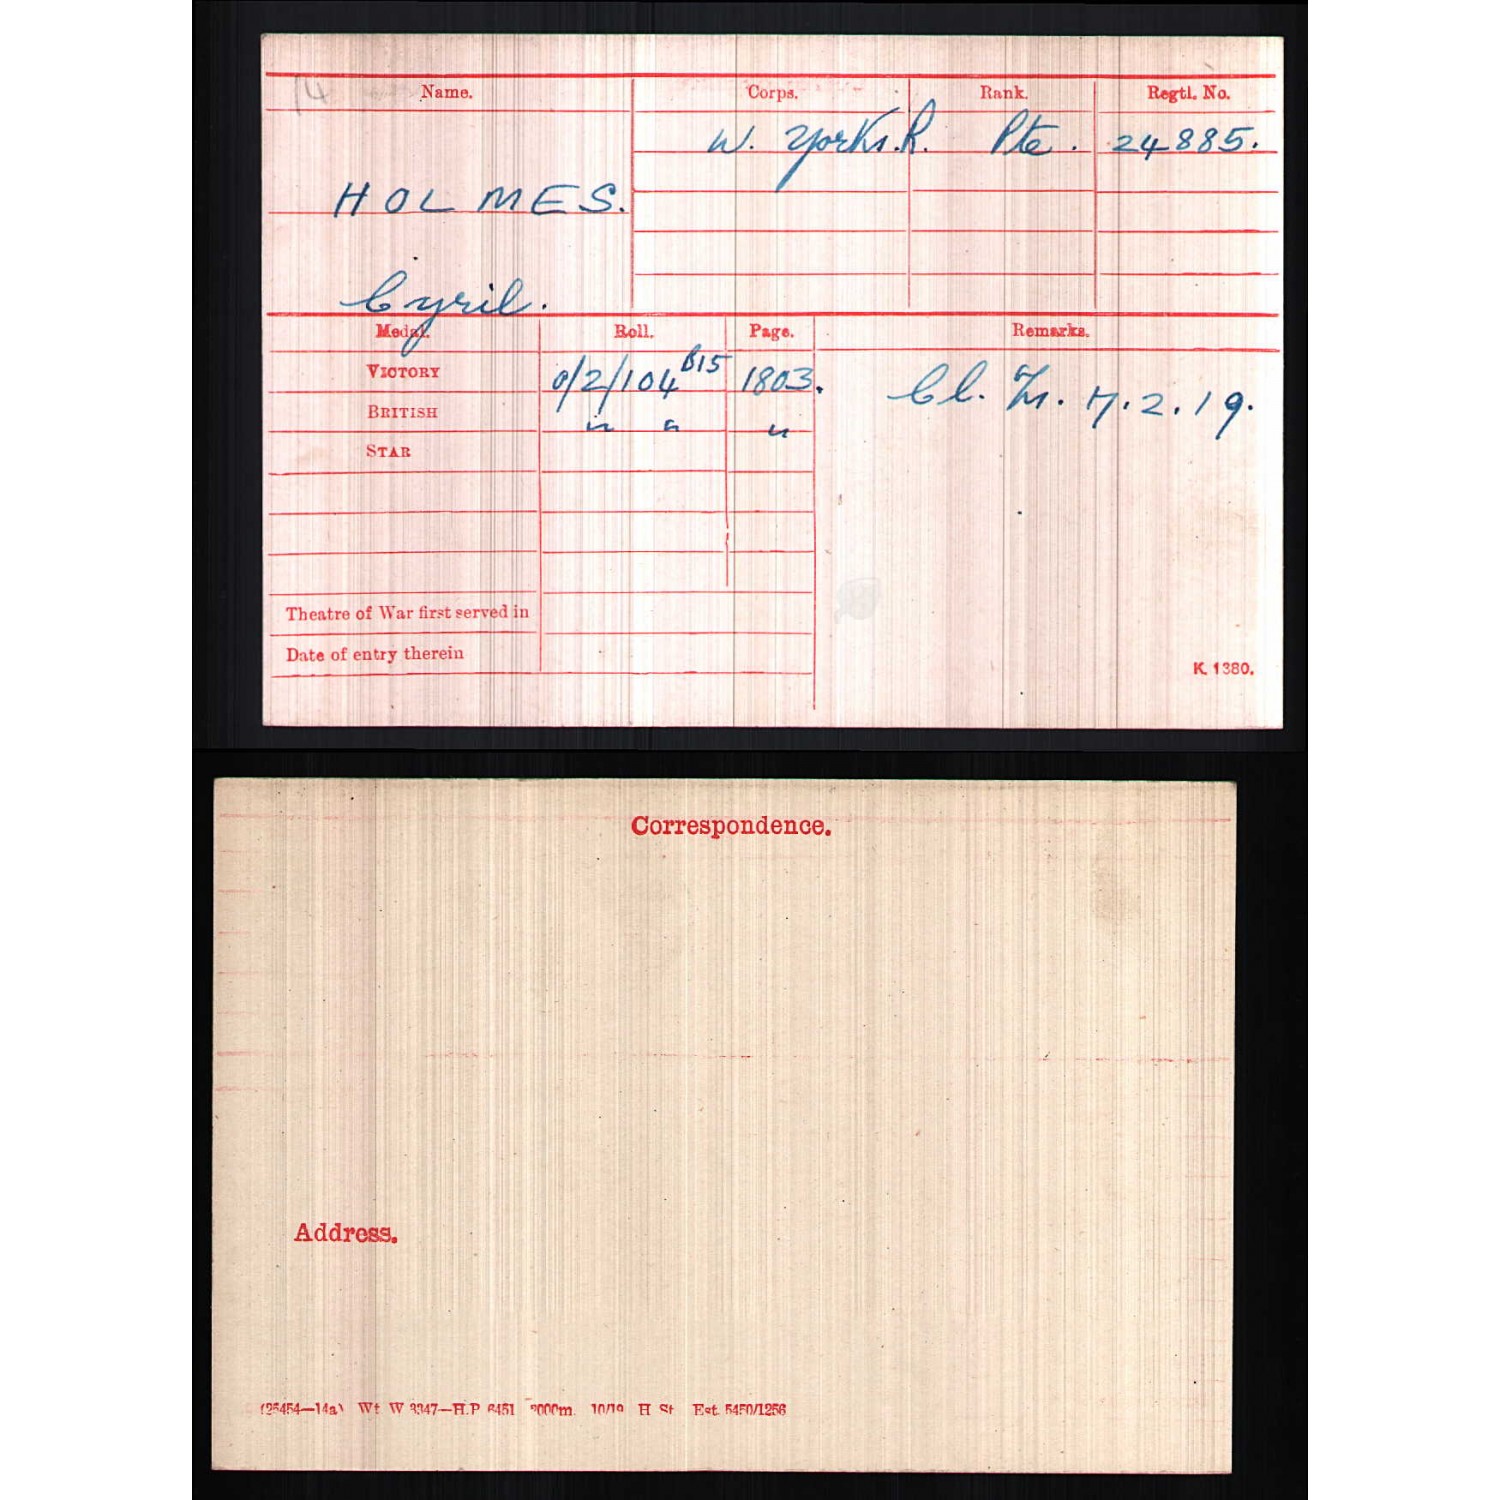 Name. Corps. Rank. Regtl. No.
W. Yorks.R. Pte. 24885.
HOLMES.
Cyril.
Medal. Roll. Page. Remarks.
VICTORY 0/2/104 B15 1803. Cl. Z. 7.2.19.
BRITISH " " "
STAR
Theatre of War first served in
Date of entry therein
K. 1380.
Correspondence.
Address.
(25454—14a) Wt W 3347—H.P 6451 3000m. 10/19 H St Est. 5450/1256